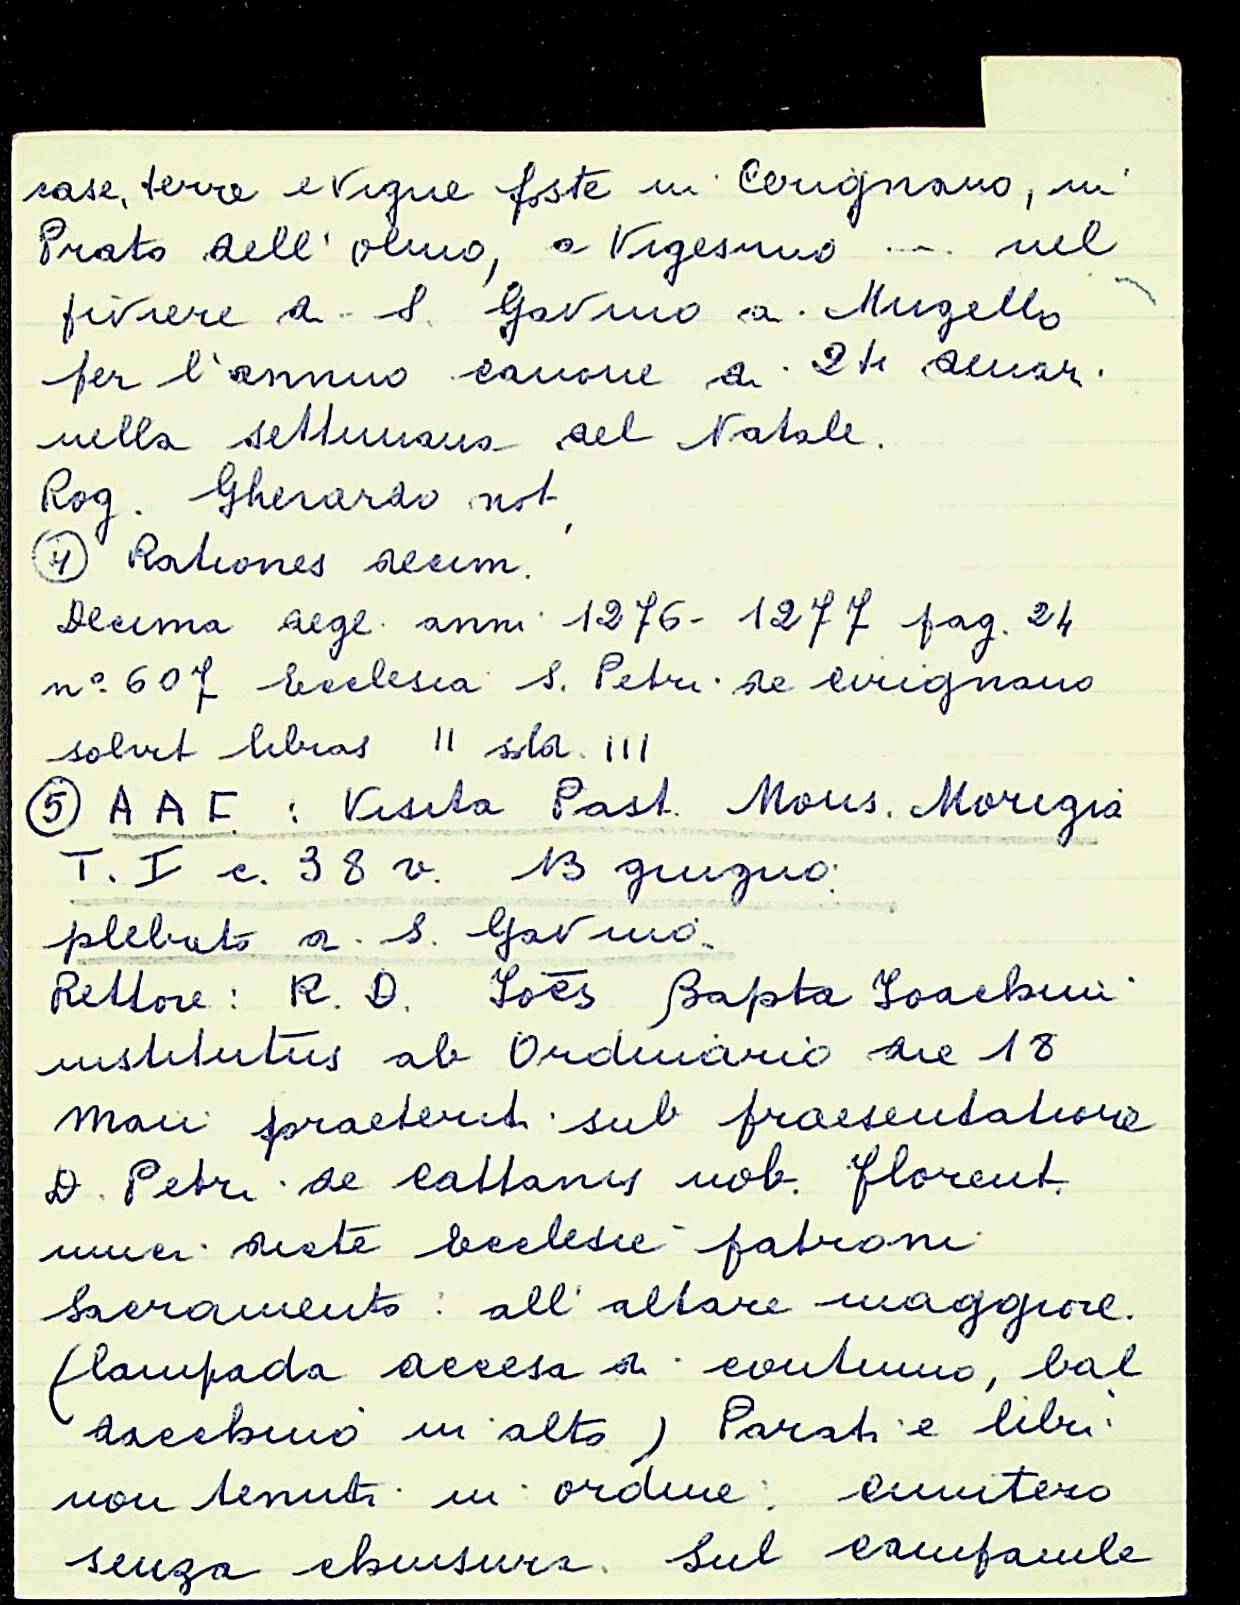 case, terre e Vigne poste in Cerignano, in
Prato dell'olmo, a Vigesimo .... nel
piviere di S. Gavino a. Mugello
per l'annuo canone di 24 denar.
nella settimana del Natale.
Rog. Gherardo not.
④ Rationes decim.
Decima degl. anni 1276-1277 pag. 24
n° 607 Ecclesia S. Petri de Cirignano
solvit libras II sold. III
⑤ A A F : Visita Past. Mons. Morigia
T. I c. 38 v. 13 giugno:
plebato di S. Gavino.
Rettore: R. D. Joēs Bapta Joachimi
institutus ab Ordinario die 18
Maii praeteriti sub praesentatione
D. Petri de Cattanis nob. Florent.
unici dictē Ecclesie patroni
Sacramento: all'altare maggiore.
(lampada accesa di continuo, bal
dacchino in alto) Parati e libri
non tenuti in ordine: cimitero
senza chiusura. Sul campanile